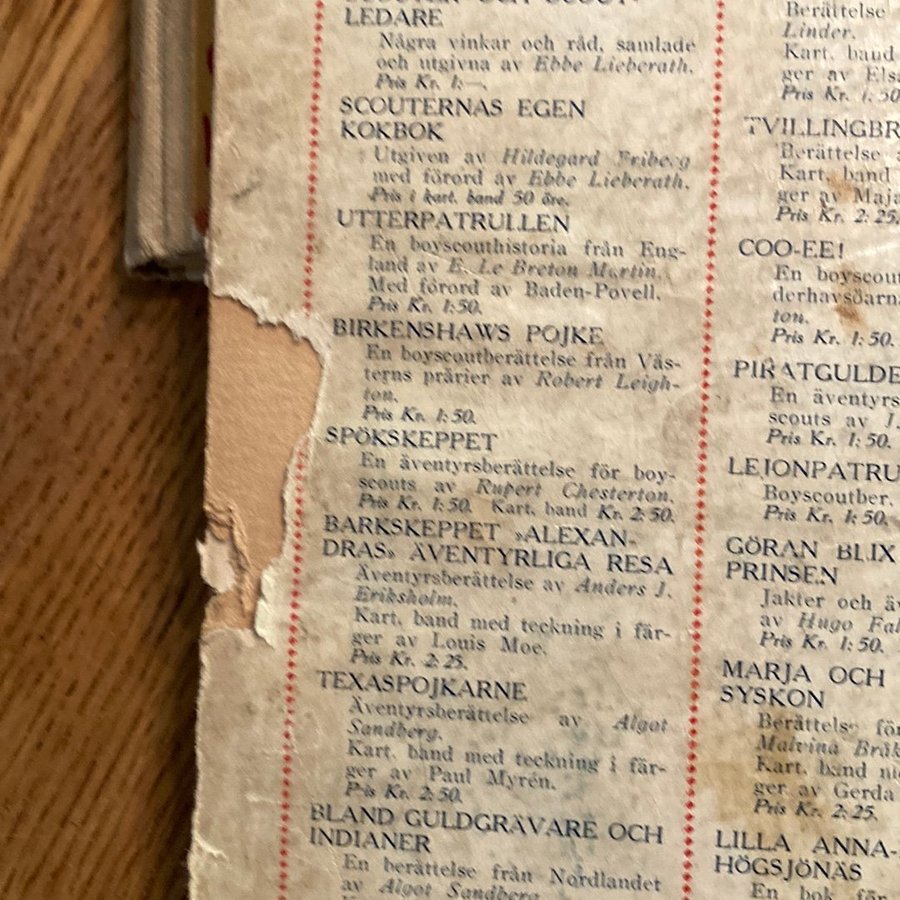 LEDARE
Några vinkar och råd, samlade
och utgivna av Ebbe Lieberath.
Pris Kr. 1:—.
SCOUTERNAS EGEN
KOKBOK
Utgiven av Hildegard Friberg
med förord av Ebbe Lieberath.
Pris i kart. band 50 öre.
UTTERPATRULLEN
En boyscouthistoria från Eng-
land av E. Le Breton Martin.
Med förord av Baden-Povell.
Pris Kr. 1:50.
BIRKENSHAWS POJKE
En boyscoutberättelse från Väs-
terns prärier av Robert Leigh-
ton.
Pris Kr. 1:50.
SPÖKSKEPPET
En äventyrsberättelse för boy-
scouts av Rupert Chesterton.
Pris Kr. 1:50. Kart. band Kr. 2:50.
BARKSKEPPET »ALEXAN-
DRAS» ÄVENTYRLIGA RESA
Äventyrsberättelse av Anders J.
Eriksholm.
Kart. band med teckning i fär-
ger av Louis Moe.
Pris Kr. 2:25.
TEXASPOJKARNE
Äventyrsberättelse av Algot
Sandberg.
Kart. band med teckning i fär-
ger av Paul Myrén.
Pris Kr. 2:50.
BLAND GULDGRÄVARE OCH
INDIANER
En berättelse från Nordlandet
av Algot Sandberg
Berättelse
Linder.
Kart. band
ger av Elsa
Pris Kr. 1.50
TVILLINGBR
Berättelse
Kart. band
ger av Maja
Pris Kr. 2:25.
COO-EE!
En boyscout
derhavsöarna
ton.
Pris Kr. 1:50.
PIRATGULDE
En äventyrs
scouts av J.
Pris Kr. 1:50.
LEJONPATRU
Boyscoutber.
Pris Kr. 1:50.
GÖRAN BLIX
PRINSEN
Jakter och äv
av Hugo Fal
Pris Kr. 1:50.
MARJA OCH
SYSKON
Berättelse för
Malvina Bråk
Kart. band
ger av Gerda
Pris Kr. 2:25.
LILLA ANNA-
HÖGSJÖNÄS
En bok för